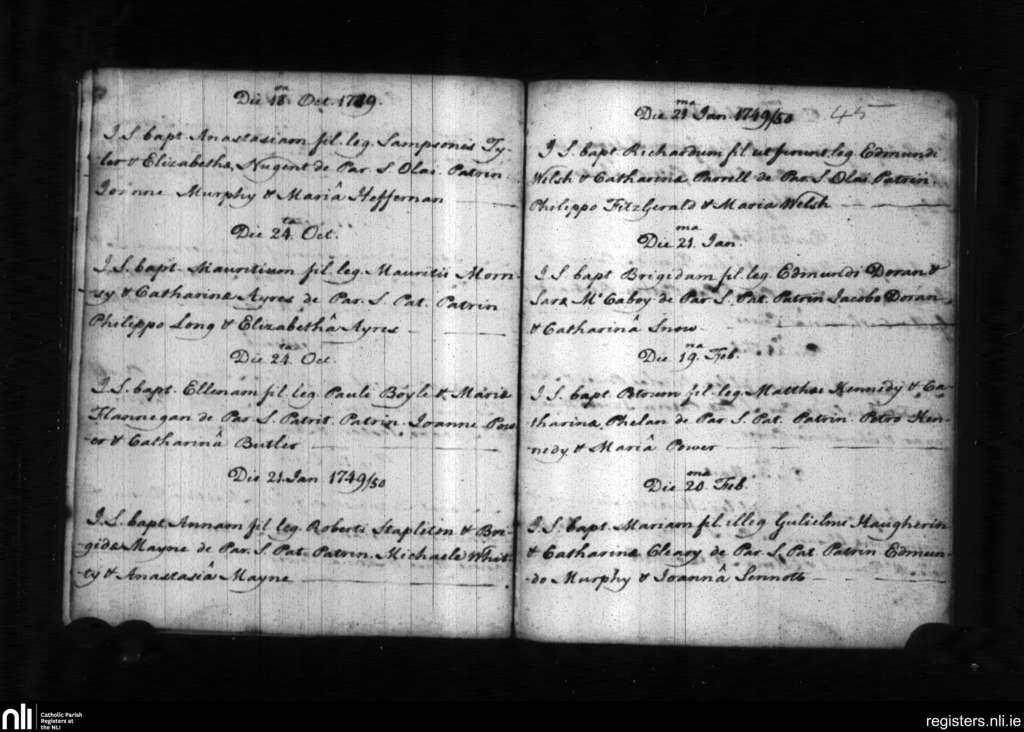 Die 18.va Oct. 1749.
I S. bapt Anastasiam fil. leg. Sampsonis Ty-
ler & Elizabethæ Nugent de Par. S Olai. Patrin.
Joanne Murphy & Mariâ Heffernan
Die 24.ta Oct.
I. S. bapt. Mauritium fil. leg. Mauritii Morri-
sy & Catharinæ Ayres de Par. S. Pat. Patrin
Philippo Long & Elizabethâ Ayres
Die 24.ta Oct.
I. S. bapt. Ellenam fil. leg. Pauli Boyle & Mariæ
Flannegan de Par S. Patrit. Patrin. Joanne Pow-
er & Catharinâ Butler
Die 21. Jan 1749/50
I. S. bapt Annam fil leg. Roberti Stapleton & Bri-
gidæ Mayne de Par. S. Pat. Patrin. Michaele Whit-
ty & Anastasiâ Mayne
45
Die 21.ma Jan 1749/50
I S. bapt Richardum fil ut ferunt leg. Edmundi
Welsh & Catharinæ Farrell de Par. S. Olai. Patrin.
Philippo FitzGerald & Maria Welsh
Die 21.ma Jan.
I. S. bapt Brigidam fil. leg. Edmundi Doran &
Saræ Mc Caboy de Par. S. Pat. Patrin Jacobo Doran
& Catharinâ Snow
Die 19.na Feb.
I. S. bapt Petrum fil. leg. Matthæi Kennedy & Ca-
tharinæ Phelan de Par S. Pat. Patrin Petro Ken-
nedy & Mariâ Power
Die 20.ma Feb.
I. S. bapt. Mariam fil. illeg. Gulielmi Haugherin
& Catharinæ Cleary de Par S. Pat. Patrin Edmun-
do Murphy & Joannâ Sennott
nli
Catholic Parish
Registers at
the NLI
registers.nli.ie